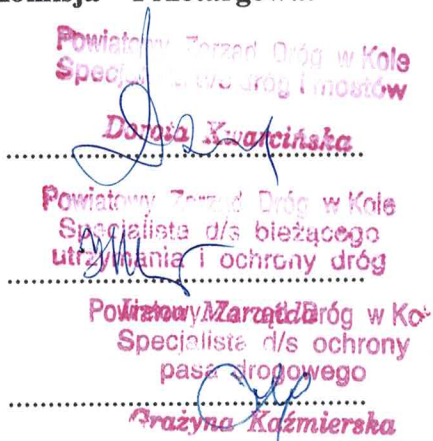 Powiatowy Zarząd Dróg w Kole
Specjalista d/s dróg i mostów
Dorota Kwarcińska
Powiatowy Zarząd Dróg w Kole
Specjalista d/s bieżącego
utrzymania i ochrony dróg
Powiatowy Zarząd Dróg w Ko
Specjalista d/s ochrony
pasa drogowego
Grażyna Kaźmierska